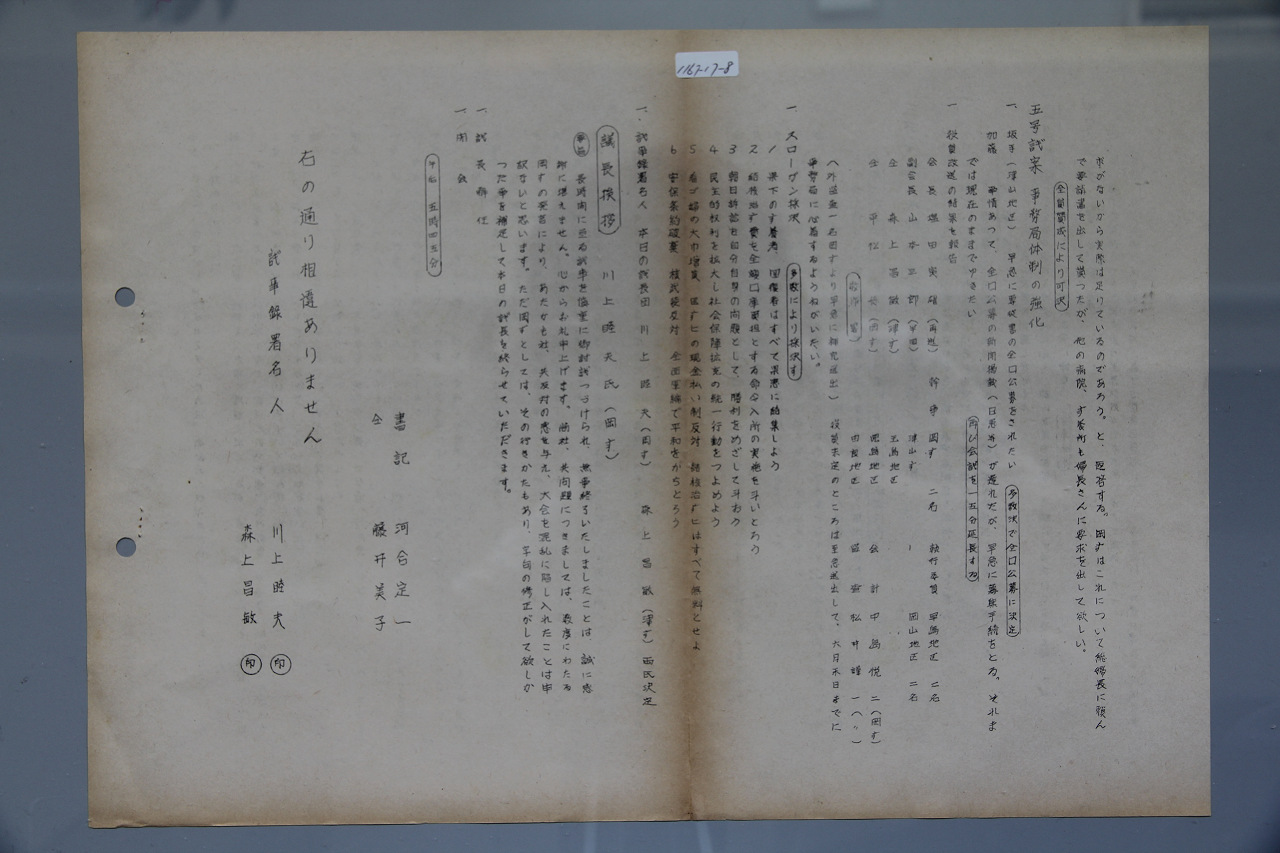 1167-17-8
求がないから実際は足りているのであろう。と、回答する。岡すはこれについて総婦長に頼ん
で要請書を出して貰ったが、他の病院、す養所も婦長さんに要求を出して欲しい。
全員賛成により可決
五号試案 事務局体制の強化
一、坂手(津山地区) 早急に専従書の全口公募をされたい 多数決で全口公募に決定
加藤 事情あって、全口公募の新聞掲載(日患半)が遅れたが、早急に募集手続をとる。それま
では現在のままでゆきたい 再び会議を一五分延長する
一 役員改選の結果を報告
会長 堀田実雄(再選) 幹事 岡す 二名 執行委員 早島地区 二名
副会長 山本三郎(早田) 津山す 一 岡山地区 二名
仝 森上昌敏(津す) 玉島地区
仝 平松 (岡す) 児島地区 会計 中島悦二(岡す)
西部地区 監査 松井 一(〃)
(外監査一名岡すより早急に補充選出) 役員未定のところは至急選出して、六月末日までに
事務局に必着するようねがいたい。
一 スローガン採決 多数により採決す
1 県下のす養者、回復者はすべて県患に結集しよう
2 結核治す費を全額口庫負担とする命令入所の実施を斗いとろう
3 朝日訴訟を自分自身の問題として、勝利をめざして斗おう
4 民主的权利を拡大し社会保障拡充の統一行動をつよめよう
5 看ゴ婦の大巾増員、医すヒの現金払い制反対 結核治すヒはすべて無料とせよ
6 安保条約破棄 核武装反対 全面軍縮で平和をかちとろう
一、試事録署名人 本日の試長団 川上睦夫(岡す) 森上昌敏(津す)両氏決定
議長挨拶 川上睦夫氏(岡す)
長時間に亘る試事を慎重に御討試つづけられ、無事終りいたしましたことは、誠に感
謝に堪えません。心からお礼申上げます。尚社、共問題につきましては、数度にわたる
岡すの発言により、あたかも社、共反対の感を与え、大会を混乱に陥し入れたことは申
訳ないと思います。ただ岡すとしては、その行きかたもあり、字句の修正がして欲しか
った事を補足して本日の試長を終らせていただきます。
一、試長解任
一、閉会
午后 五時四五分
右の通り相違ありません
書記 河合定一
仝 藤井美子
試事録署名人 川上睦夫 印
森上昌敏 印